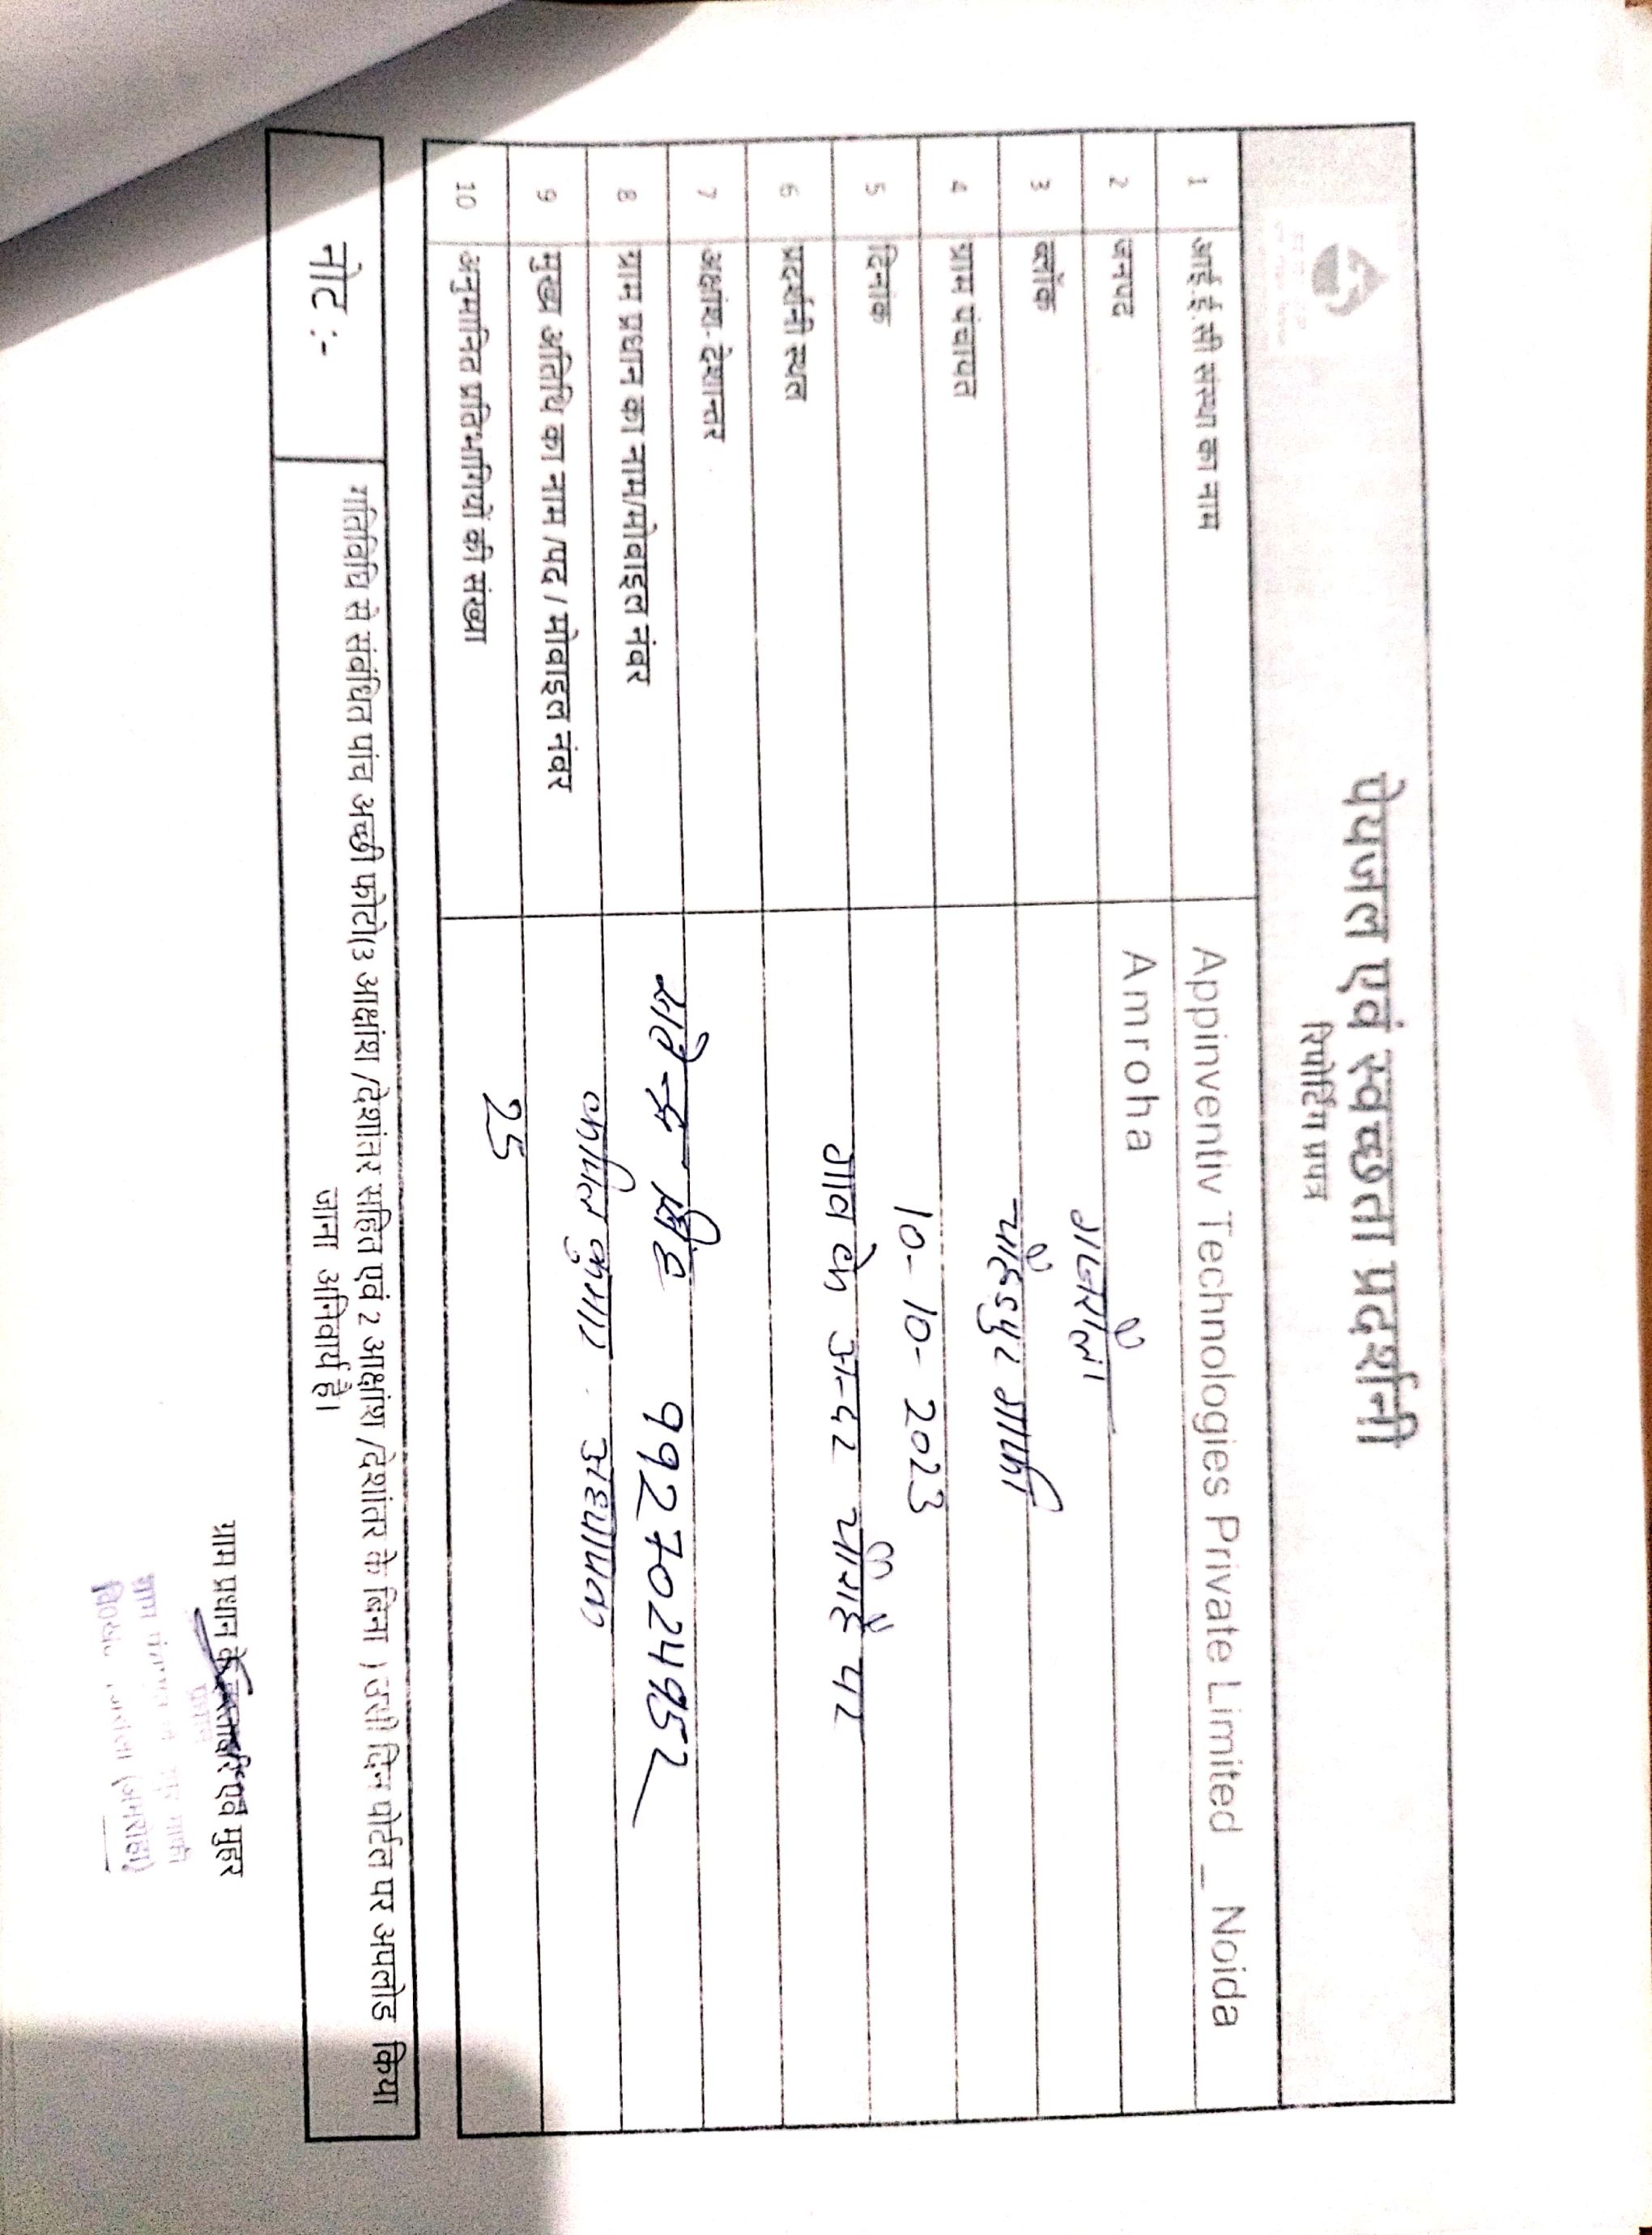 पेयजल एवं स्वच्छता प्रदर्शनी
रिपोर्टिंग प्रपत्र
1 आई.ई.सी संस्था का नाम Appinventiv Technologies Private Limited _ Noida
2 जनपद Amroha
3 ब्लॉक गजरौला
4 ग्राम पंचायत चांदपुर माफी
5 दिनांक 10-10-2023
6 प्रदर्शनी स्थल गाव के अन्दर चौराहे पर
7 अक्षांश-देशान्तर
8 ग्राम प्रधान का नाम/मोबाइल नंबर सिंह 9927024952
9 मुख्य अतिथि का नाम /पद / मोबाइल नंबर कपिल कुमार अध्यापक
10 अनुमानित प्रतिभागियों की संख्या 25
नोट :- गतिविधि से संबंधित पांच अच्छी फोटो(3 आक्षांश /देशांतर सहित एवं 2 आक्षांश /देशांतर के बिना ) उसी दिन पोर्टल पर अपलोड किया
जाना अनिवार्य है।
ग्राम प्रधान के हस्ताक्षर एवं मुहर
प्रधान
ग्राम माफी
(अमरोहा)